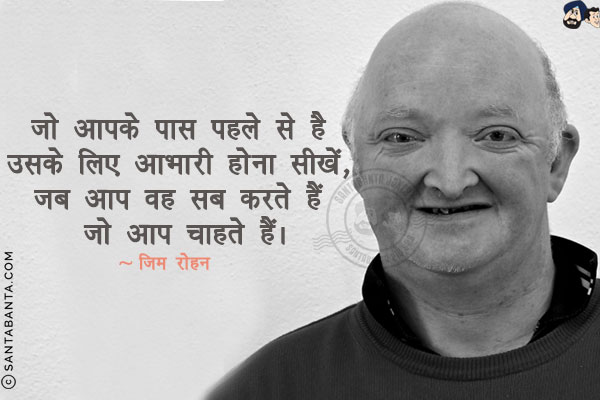 जो आपके पास पहले से है
उसके लिए आभारी होना सीखें,
जब आप वह सब करते हैं
जो आप चाहते हैं।
~ जिम रोहन
© SANTABANTA.COM